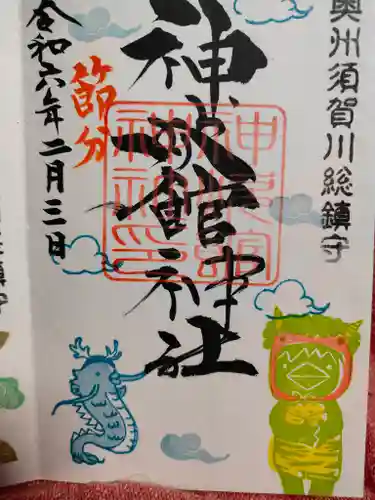 奥州須賀川総鎮守
神炊館神社
神炊館
神社印
節分
令和六年二月三日